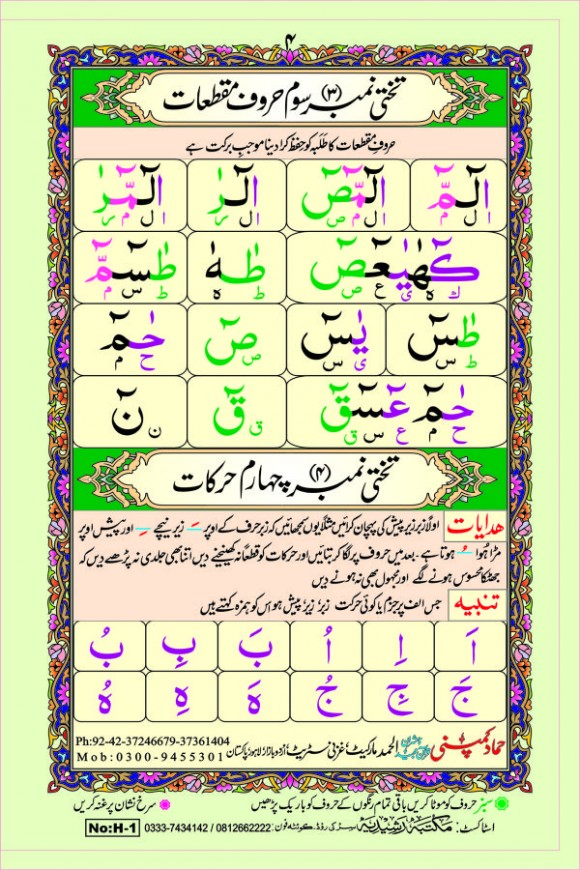 ۴
تختی نمبر (۳) سوم حروف مقطعات
حروفِ مقطعات کا طلبہ کو حفظ کرا دینا موجب برکت ہے
الٓمّٓ الٓمّٓصٓ الٓرٰ الٓمّٓرٰ
ا ل م ا ل م ص ا ل ر ا ل م ر
كٓهٰيٰعٓصٓ طٰهٰ طٰسٓمّٓ
ك ه ی ع ص ط ه ط س م
طٰسٓ يٰسٓ صٓ حٰمٓ
ط س ی س ص ح م
حٰمٓ عٓسٓقٓ قٓ نٓ
ح م ع س ق ق ن
تختی نمبر (۴) چہارم حرکات
ھدایات اولاً زبر زیر پیش کی پہچان کرائیں مثلاً یوں سمجھائیں کہ زبر حرف کے اوپر ـَ زیر نیچے ـِ اور پیش اوپر
مڑا ہوا ـُ ہوتا ہے۔ بعد میں حروف پر لگا کر بتائیں اور حرکات کو قطعاً نہ کھینچنے دیں اتنا بھی جلدی نہ پڑھے دیں کہ
جھٹکا محسوس ہونے لگے اور مجہول بھی نہ ہونے دیں
تنبیہ جس الف پر جزم یا کوئی حرکت زبر زیر پیش ہو اس کو ہمزہ کہتے ہیں
اَ اِ اُ بَ بِ بُ
جَ جِ جُ هَ هِ هُ
حماد کمپنی الحمد مارکیٹ، غزنی سٹریٹ، اُردو بازار لاہور پاکستان
Ph:92-42-37246679-37361404
Mob:0300-9455301
سبز حروف کو موٹا کریں باقی تمام رنگوں کے حروف کو باریک پڑھیں سرخ نشان پر غنہ کریں
اسٹاکسٹ: مکتبہ رشیدیہ سرکی روڈ، کوئٹہ فون: 0333-7434142 / 0812662222 No:H-1